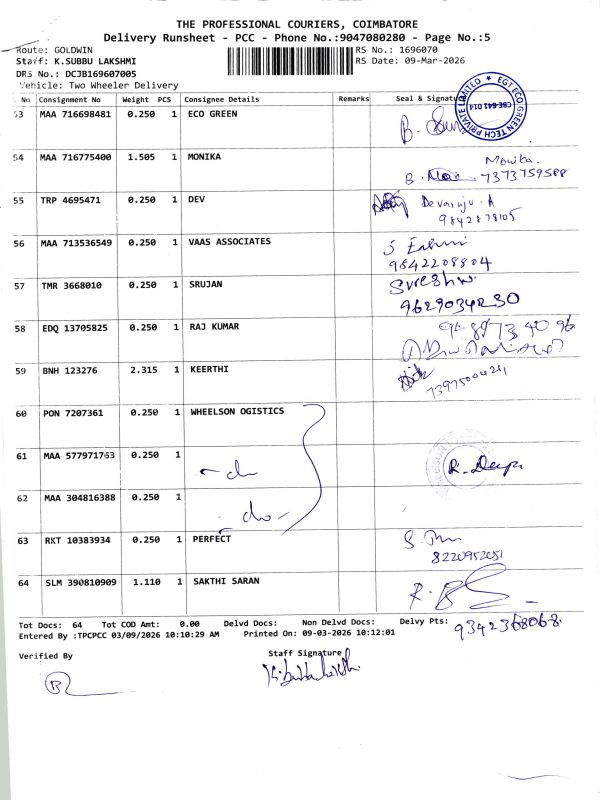 THE PROFESSIONAL COURIERS, COIMBATORE
Delivery Runsheet - PCC - Phone No.:9047080280 - Page No.:5
Route: GOLDWIN
RS No.: 1696070
Staff: K.SUBBU LAKSHMI
RS Date: 09-Mar-2026
DRS No.: DCJB169607005
Vehicle: Two Wheeler Delivery
No Consignment No Weight PCS Consignee Details Remarks Seal & Signature
EGT ECO GREEN TECH PRIVATE LIMITED
CBE-641 014
53 MAA 716698481 0.250 1 ECO GREEN
54 MAA 716775400 1.505 1 MONIKA
Monika.
7373759588
55 TRP 4695471 0.250 1 DEV
Devaraju. A
56 MAA 713536549 0.250 1 VAAS ASSOCIATES
9842208804
57 TMR 3668010 0.250 1 SRUJAN
Sureshw.
9629034230
58 EDQ 13705825 0.250 1 RAJ KUMAR
59 BNH 123276 2.315 1 KEERTHI
60 PON 7207361 0.250 1 WHEELSON OGISTICS
61 MAA 577971763 0.250 1
-do
R. Deepi
62 MAA 304816388 0.250 1
-do-
63 RKT 10383934 0.250 1 PERFECT
64 SLM 390810909 1.110 1 SAKTHI SARAN
Tot Docs: 64 Tot COD Amt: 0.00 Delvd Docs: Non Delvd Docs: Delvy Pts:
9342368068.
Entered By :TPCPCC 03/09/2026 10:10:29 AM Printed On: 09-03-2026 10:12:01
Verified By
Staff Signature